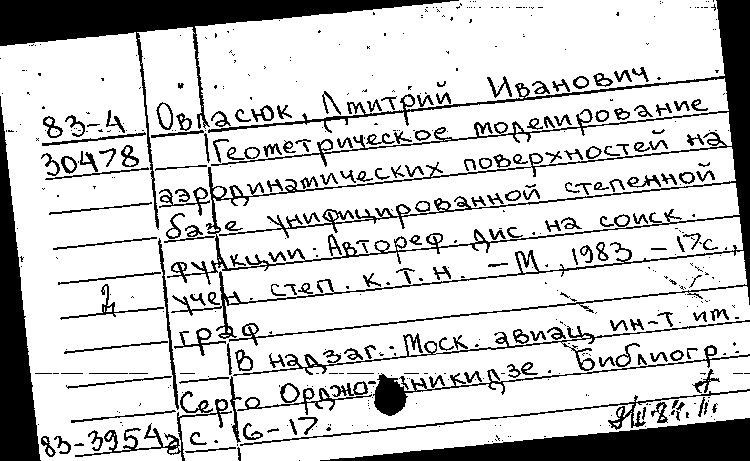 83-4 Овласюк, Дмитрий Иванович.
30478 Геометрическое моделирование
аэродинамических поверхностей на
базе унифицированной степенной
функции: Автореф. дис. на соиск.
учен. степ. к.т.н. – М., 1983. – 17с.,
граф.
В надзаг.: Моск. авиац. ин-т им.
Серго Орджоникидзе. Библиогр.:
с. 16-17.
83-3954а